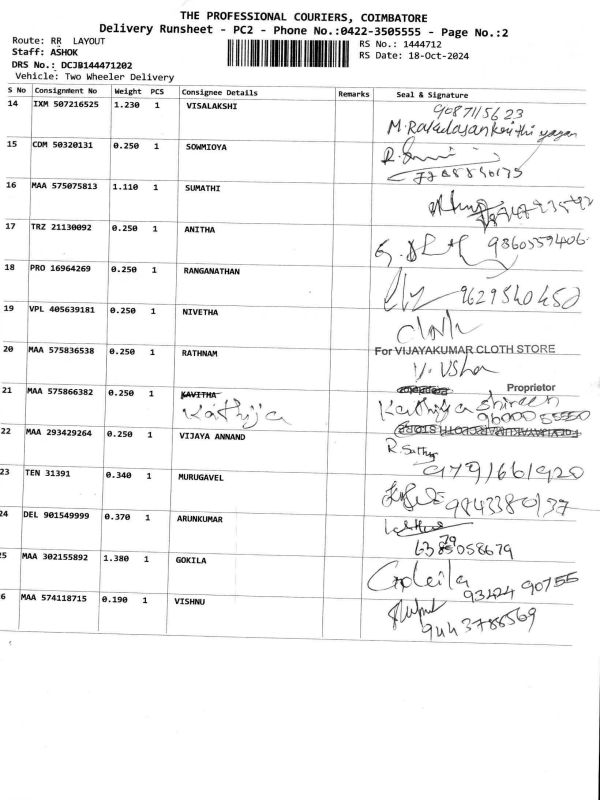 THE PROFESSIONAL COURIERS, COIMBATORE
Delivery Runsheet - PC2 - Phone No.:0422-3505555 - Page No.:2
Route: RR LAYOUT
Staff: ASHOK
DRS No.: DCJB144471202
Vehicle: Two Wheeler Delivery
RS No.: 1444712
RS Date: 18-Oct-2024
S No Consignment No Weight PCS Consignee Details Remarks Seal & Signature
14 IXM 507216525 1.230 1 VISALAKSHI
9087115623
15 CDM 50320131 0.250 1 SOWMIOYA
16 MAA 575075813 1.110 1 SUMATHI
17 TRZ 21130092 0.250 1 ANITHA
9860559406
18 PRO 16964269 0.250 1 RANGANATHAN
9629540450
19 VPL 405639181 0.250 1 NIVETHA
20 MAA 575836538 0.250 1 RATHNAM
For VIJAYAKUMAR CLOTH STORE
V. Usha
Proprietor
21 MAA 575866382 0.250 1 KAVITHA
Kathija
96000 55550
22 MAA 293429264 0.250 1 VIJAYA ANNAND
R. Sathy
9791661920
23 TEN 31391 0.340 1 MURUGAVEL
9843380137
24 DEL 901549999 0.370 1 ARUNKUMAR
25 MAA 302155892 1.380 1 GOKILA
93424 90755
6 MAA 574118715 0.190 1 VISHNU
9443788569